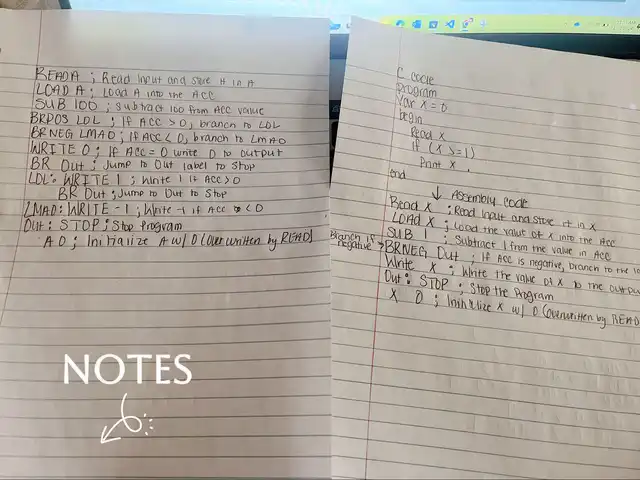 READ A ; Read Input and store it in A
LOAD A ; Load A into the ACC
SUB 100 ; Subtract 100 from ACC value
BRPOS LDL ; If ACC > 0, branch to LDL
BRNEG LMAO ; If ACC < 0, branch to LMAO
WRITE 0 ; If ACC = 0 write 0 to output
BR Out ; Jump to Out label to Stop
LDL: WRITE 1 ; Write 1 if ACC > 0
BR Out ; Jump to Out to Stop
LMAO: WRITE -1 ; Write -1 if ACC < 0
Out: STOP ; Stop Program
A 0 ; Initialize A w/ 0 (overwritten by READ)
NOTES
C code
program
Var X = 0
begin
Read X
if (X >= 1)
Print X
end
↓ Assembly code
Read X ; Read Input and store it in X
LOAD X ; Load the value of X into the ACC
SUB 1 ; Subtract 1 from the value in ACC
Branch if negative → BRNEG Out ; If ACC is negative, branch to the
Write X ; Write the value of X to the output
Out: STOP ; Stop the Program
X 0 ; Initialize X w/ 0 (overwritten by READ